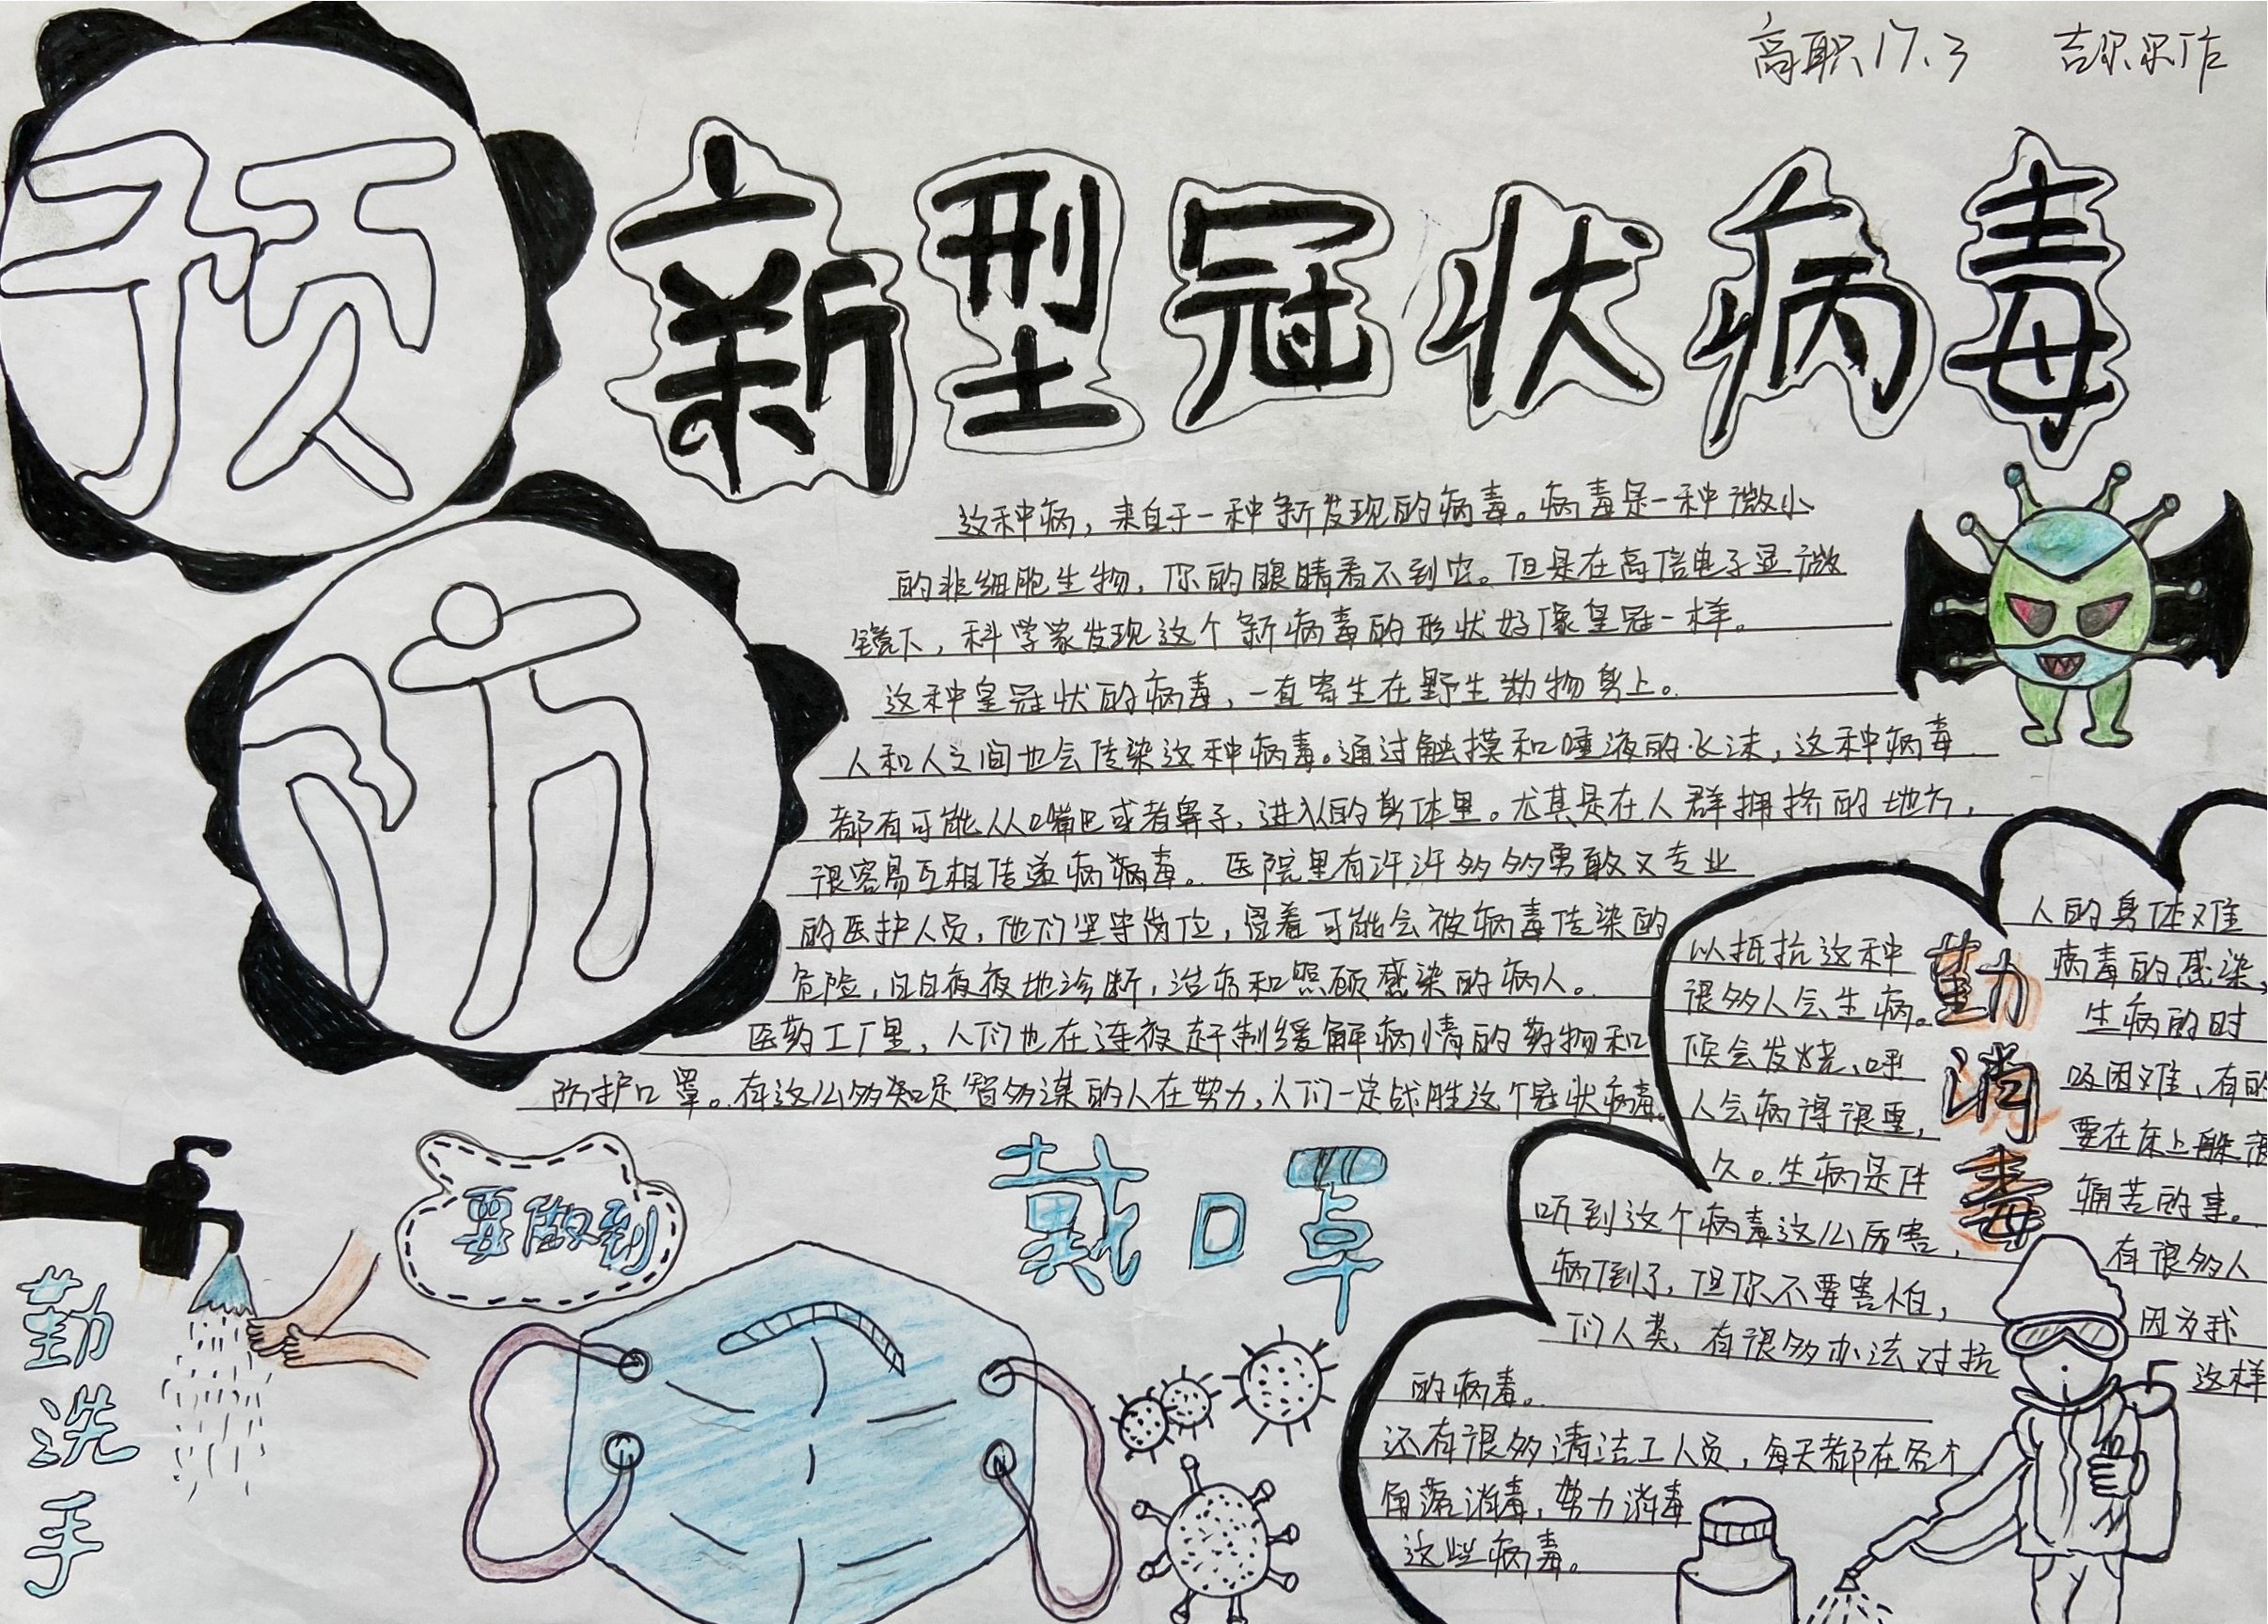 高职17.3 吉尔尔作
预
防
新型冠状病毒
这种病，来自于一种新发现的病毒。病毒是一种微小
的非细胞生物，你的眼睛看不到它。但是在高倍电子显微
镜下，科学家发现这个新病毒的形状好像皇冠一样。
这种皇冠状的病毒，一直寄生在野生动物身上。
人和人之间也会传染这种病毒。通过触摸和唾液的飞沫，这种病毒
都有可能从口嘴巴或者鼻子，进入的身体里。尤其是在人群拥挤的地方，
很容易互相传递病病毒。医院里有许许多多勇敢又专业
的医护人员，他们坚守岗位，冒着可能会被病毒传染的
危险，日日夜夜地诊断，治病和照顾感染的病人。
医药工厂里，人们也在连夜赶制缓解病情的药物和
防护口罩。有这么多知足智多谋的人在努力，人们一定战胜这个冠状病毒。
人的身体难
以抵抗这种 病毒的感染，
很多人会生病。 生病的时
候会发烧、呼 吸困难、有的
人会病得很重， 要在床上躺很
久。生病是件 痛苦的事。
听到这个病毒这么厉害， 有很多人
病倒了，但你不要害怕， 因为我
们人类，有很多办法对抗 这样
的病毒。
还有很多清洁工人员，每天都在各个
角落消毒，努力消毒
这些病毒。
勤消毒
要做到
戴口罩
勤洗手